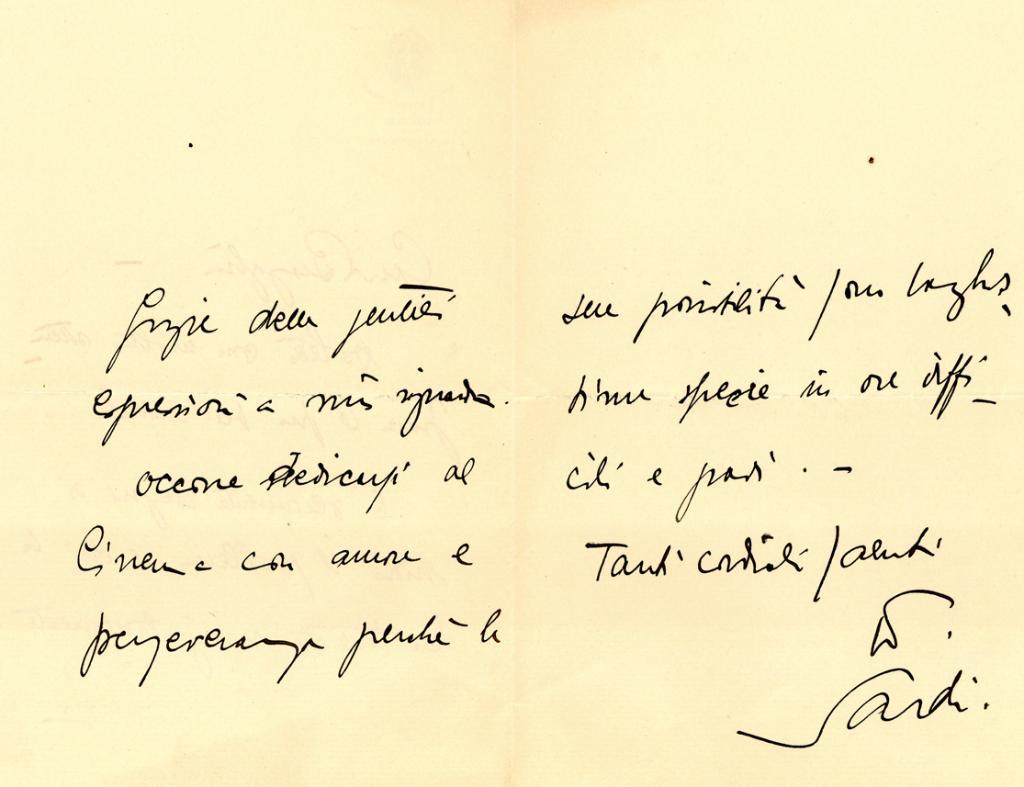 Grazie delle gentili
espressioni a mio riguardo.
occorre dedicarsi al
Cinema con amore e
perseveranza perchè le
sue possibilità sono larghis
sime specie in ore diffi
cili e gravi. -
Tanti cordiali saluti
Sardi.